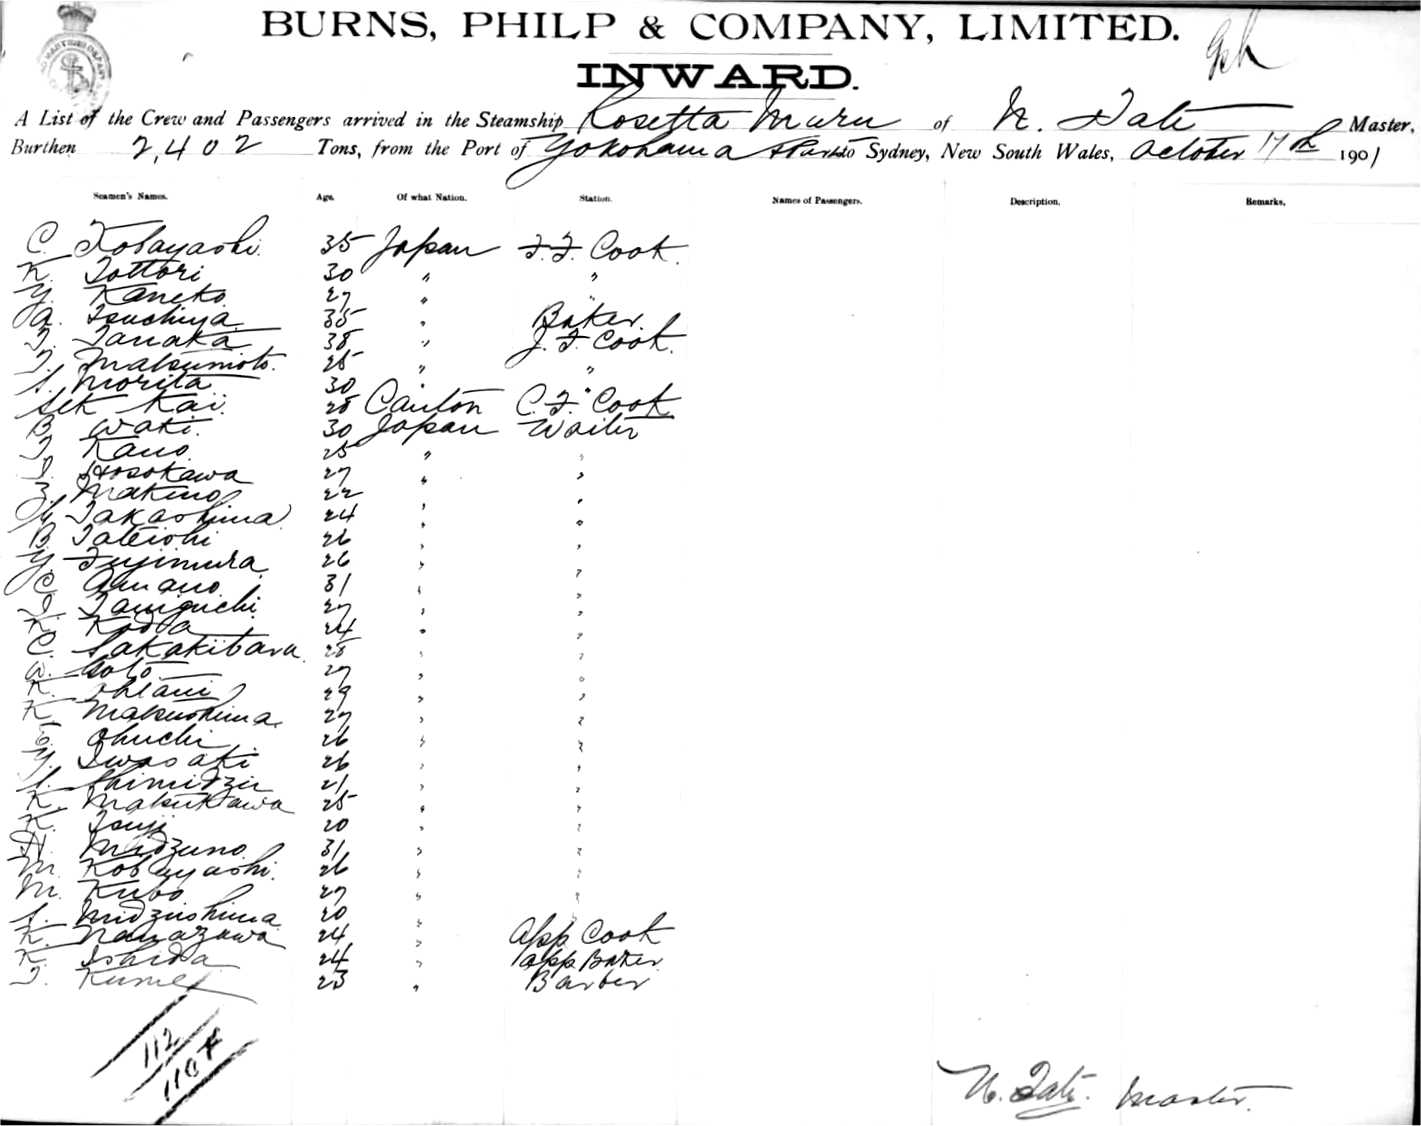 BURNS, PHILP & COMPANY, LIMITED.
INWARD.
A List of the Crew and Passengers arrived in the Steamship Rosetta Maru of N. Tate Master,
Burthen 2,402 Tons, from the Port of Yokohama & Ports to Sydney, New South Wales, October 17th 1901
Seamen's Names. Age. Of what Nation. Station. Names of Passengers. Description. Remarks.
C. Kobayashi. 35 Japan F.F. Cook.
K. Tottori 30 " "
Y. Kaneko 27 " "
A. Tsuchiya 35 " Baker.
T. Tanaka 38 " J.F. Cook.
T. Matsumoto. 25 " "
S. Morita 30 " "
Sek Kai. 28 Canton C.F. Cook
B. Waki. 30 Japan Waiter
T. Kano 25 " "
I. Hosokawa 27 " "
Z. Makino 22 " "
M. Takashima 24 " "
B. Tateishi 26 " "
Y. Fujimura 26 " "
C. Amano 31 " "
I. Taniguchi 27 " "
K. Koda 24 " "
C. Sakakibara 28 " "
W. Goto 27 " "
K. Ohtani 29 " "
K. Matsushima 27 " "
Ohuchi 26 " "
Y. Iwasaki 26 " "
S. Shimidzu 21 " "
K. Matsukawa 25 " "
K. Tsuji 20 " "
H. Midzuno 31 " "
M. Kobayashi. 26 " "
M. Kubo 27 " "
S. Midzushima 20 " "
K. Nanazawa 24 " App Cook
K. Ishida 24 " App Baker
T. Kume 23 " Barber
112
110
N. Tate. Master.